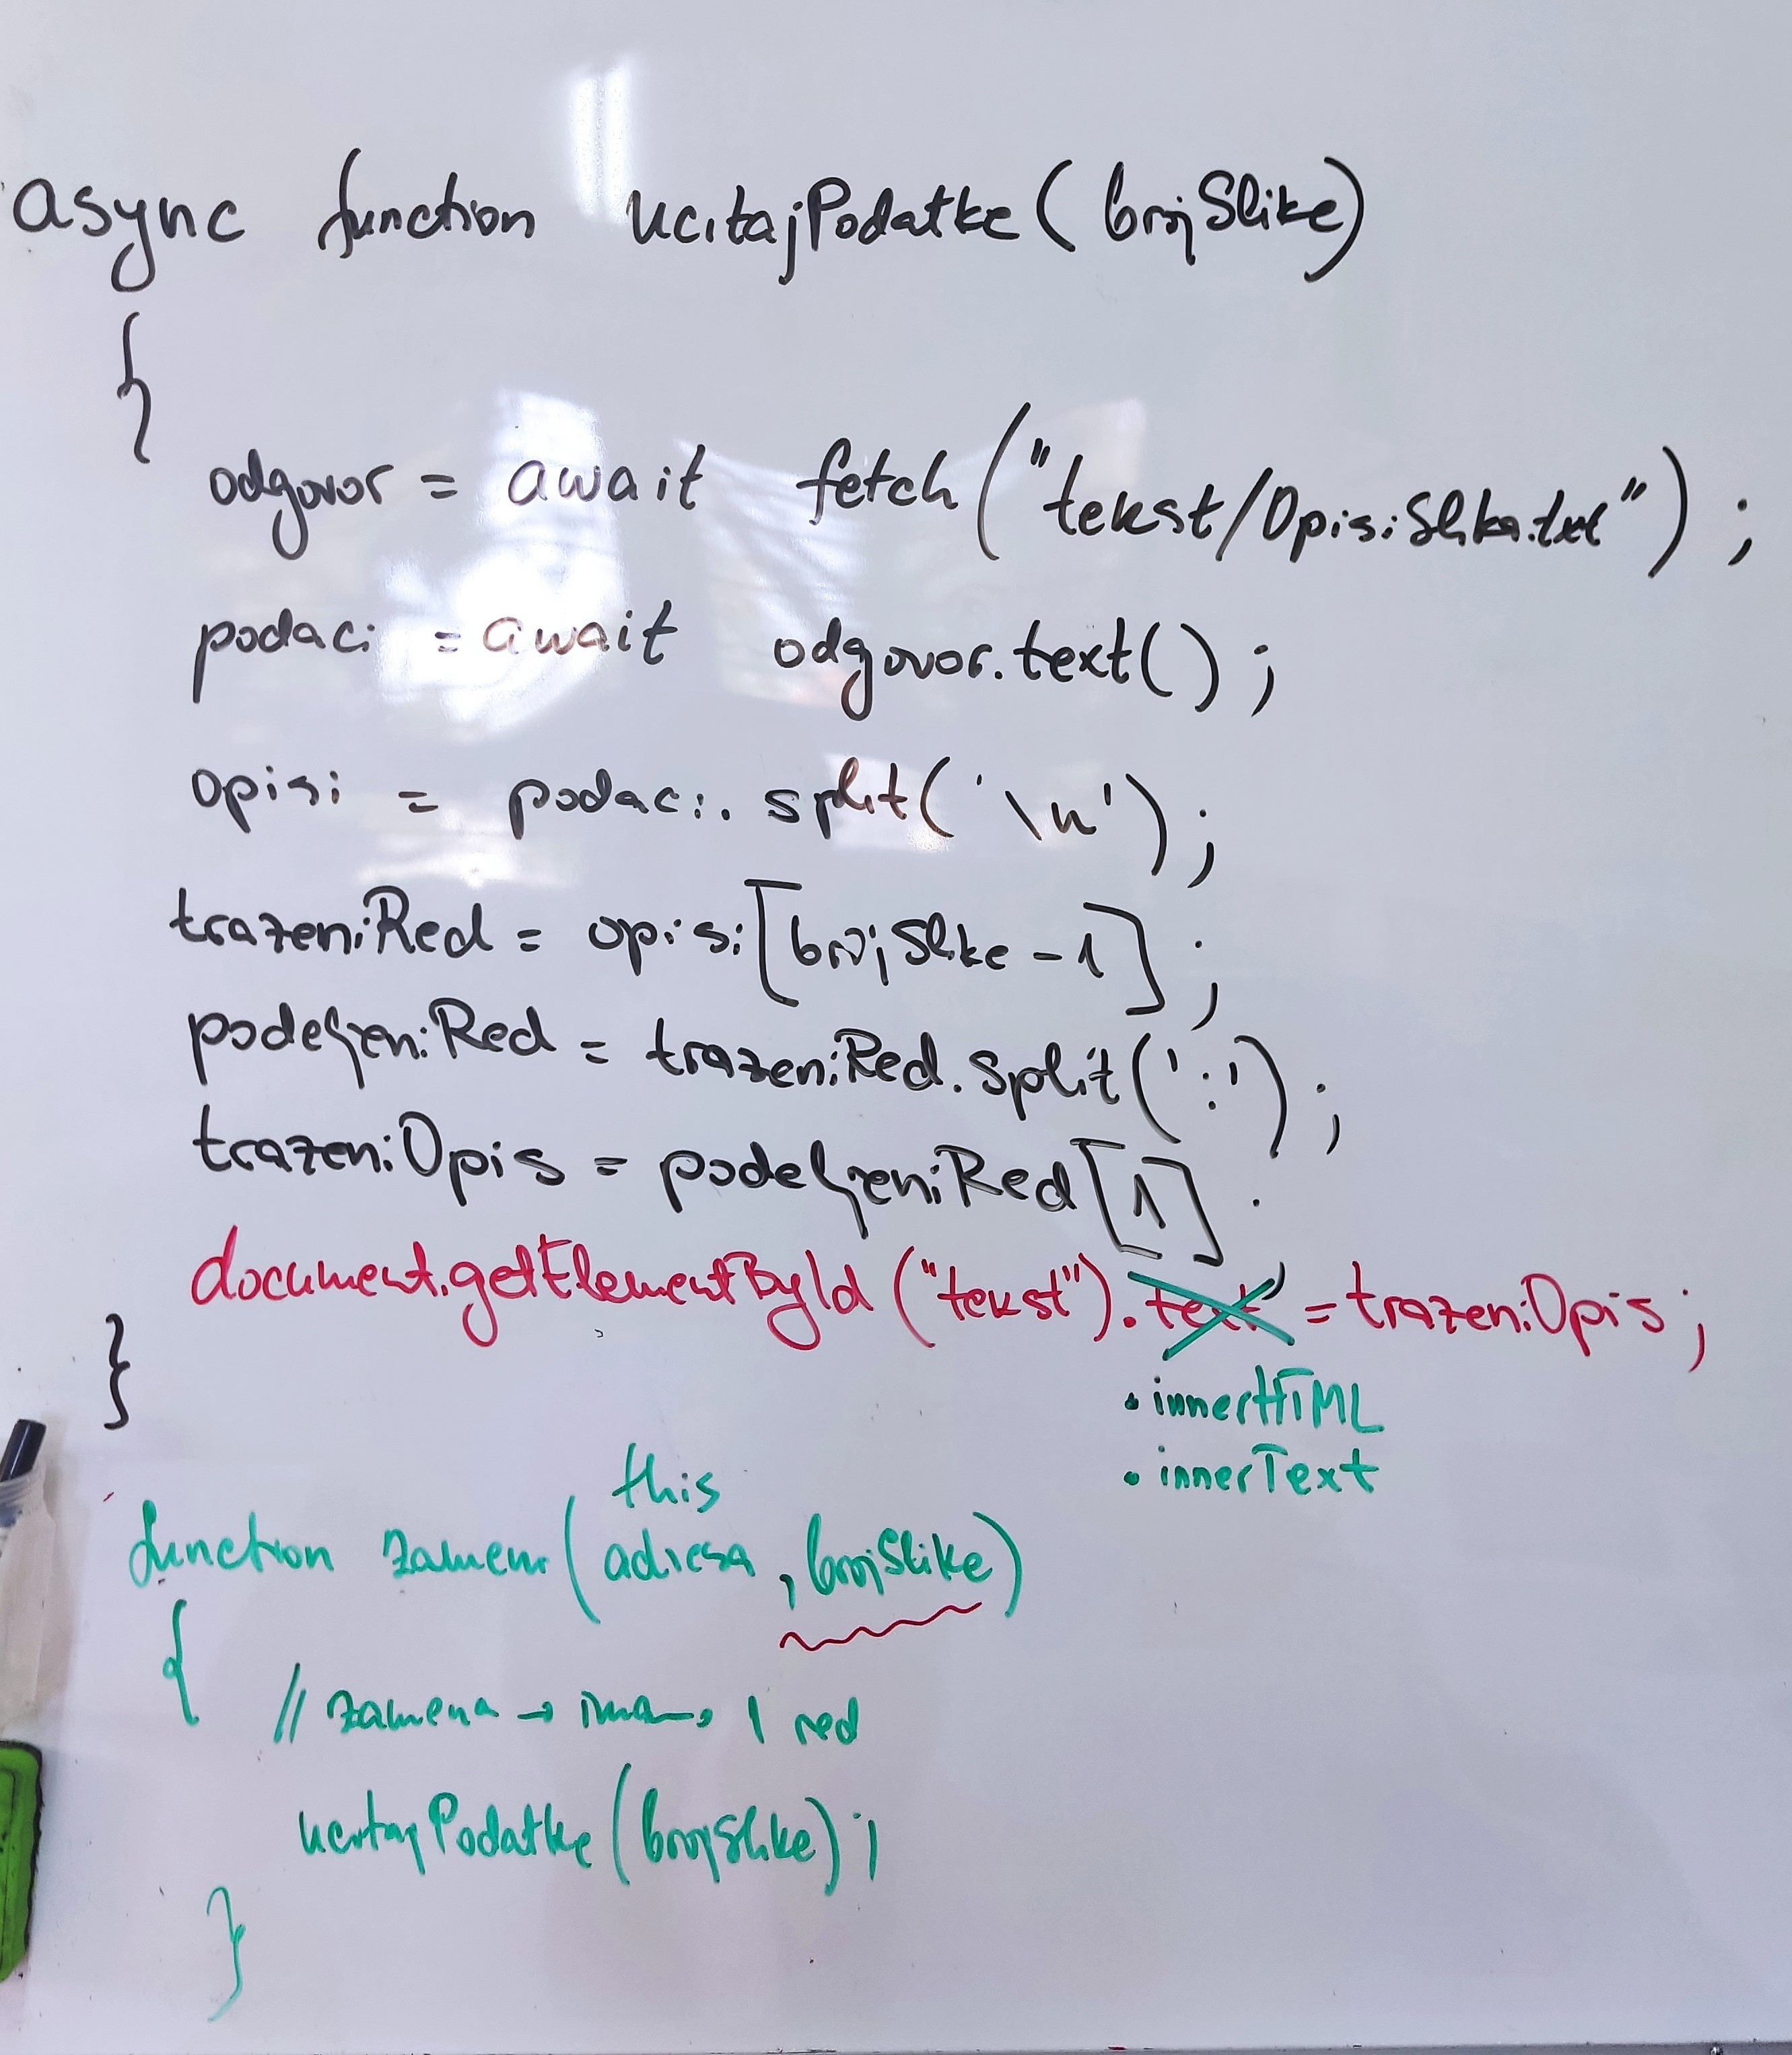 async function ucitajPodatke(brojSlike)
{
odgovor = await fetch("tekst/OpisiSlika.txt");
podaci = await odgovor.text();
opisi = podaci.split('\n');
trazeniRed = opisi[brojSlike-1];
podeljeniRed = trazeniRed.split(':');
trazeniOpis = podeljeniRed[1];
document.getElementById("tekst").text = trazeniOpis;
.innerHTML
.innerText
}
this
function zameni(adresa, brojSlike)
{
// zamena → ima 1 red
ucitajPodatke(brojSlike);
}